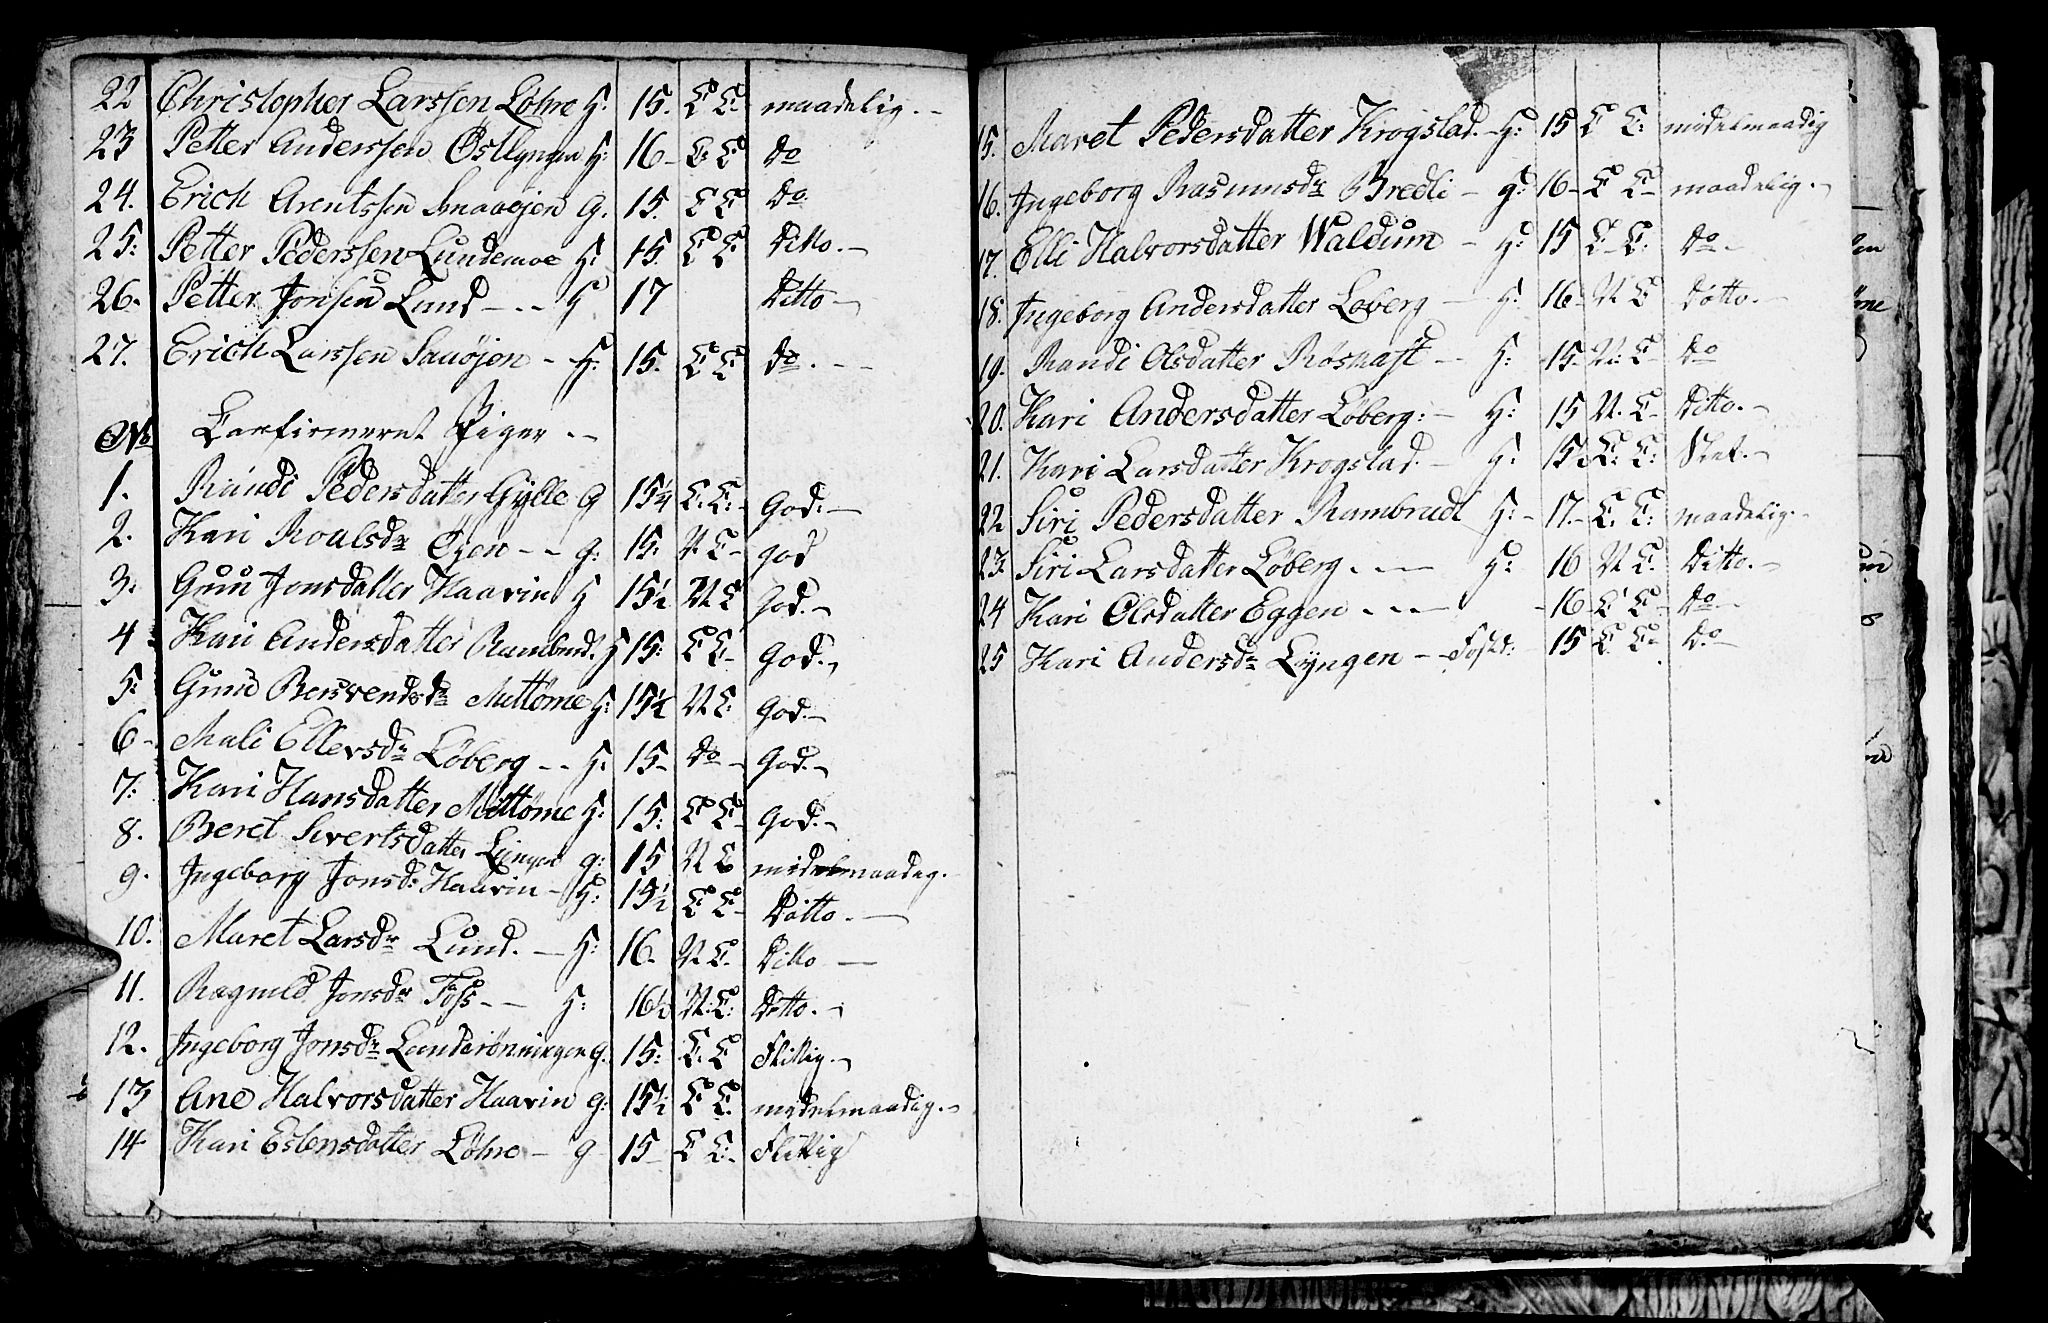 22 Christopher Larssen Løhre H: 15. C C. maadelig.-
23 Petter Anderssen Østlyngen H: 16- C: C Do
24. Erich Arentssen G. 15. C C Do
25: Petter Pederssen Lundemoe H. 15 C C Ditto.-
26. Petter Jonsen Lund -.- H 17 Ditto-
27. Erich Larssen Sauøien - H. 15. C C Do.--
No Confirmeret Piger --
1. Randi Pedersdatter Gylle G 15¼ C. C:- God.-
2. Kari Roalsdr Øyen -- G: 15: N. C- god
3: Guru Jonsdatter Haavin H 15½ N. C God.-
4 Kari Andersdatter Rambrud. H 15: C C- God.-
5: Guru Bersvendsdr Mittømme H: 15½ N C: God.-
6- Mali Ellevsdr Løberg -- H. 15- Do- God.-
7: Kari Hansdatter Mittømme H: 15: C C- God.-
8. Beret Sivertsdatter Lyngen g: 15 N C midelmaadeg.-
9. Ingeborg Jonsd: Haavin - H: 15½ C C- Ditto.-
10. Maret Larsdr Lund. - H: 16- N C. Ditto -
11. Ragnild Jonsdr Foss -- H: 16½ N: C: Ditto.-
12. Ingeborg Jonsdr Lunderønningen G. 15: C. C Flittig.-
13 Ane Halvorsdatter Haavin g: 15½ C C. midelmaadig.-
14 Kari Estensdatter Løhre - g 15- C C:- Flittig
15. Maret Pedersdatter Krogstad.- H: 15 C C: midelmaadig
16. Ingeborg Rasmusdr Bredli - H: 16- C C- maadelig.-
17. Elli Halvorsdatter Waldum - H: 15 C- C: Do-
18. Ingeborg Andersdatter Løberg - H: 16- N C Ditto.-
19. Randi Olsdatter Røshaft -- H: 15- N: C- Do
20. Kari Andersdatter Løberg: - H: 15 N. C- Ditto.-
21. Kari Larsdatter Krogstad.- H: 15½ C: C: Slet.-
22 Siri Pedersdatter Rambrudt H:- 17.- C. C: maadelig.-
23. Siri Larsdatter Løberg.--- H: 16 N C. Ditto.-
24 Kari Olsdatter Eggen.--- -16- C C- Do-
25 Kari Andersdr Lyngen -- 15 C C: Do-